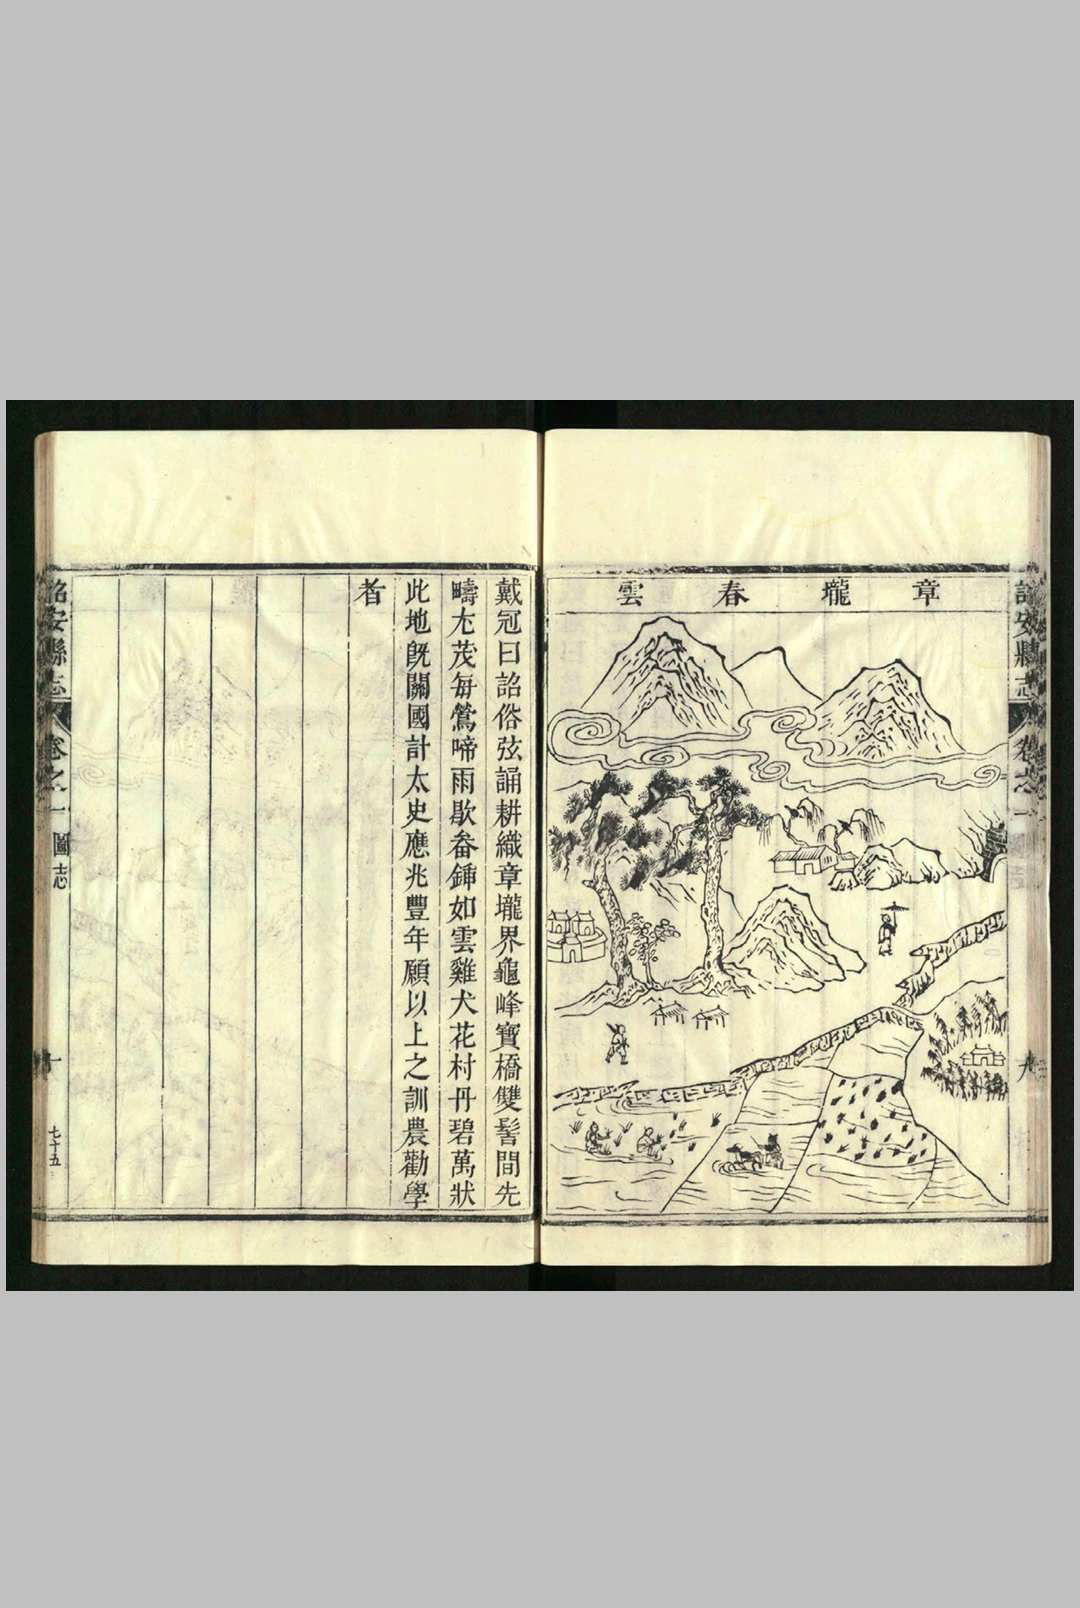 章壠春雲
戴冠曰詔俗弦誦耕織章壠界龜峰寶橋雙髻間先
疇尤茂每鶯啼雨歇畚鍤如雲雞犬花村丹碧萬狀
此地既關國計太史應兆豐年願以上之訓農勸學
者
詔安縣志
卷之一
圖志
七十五